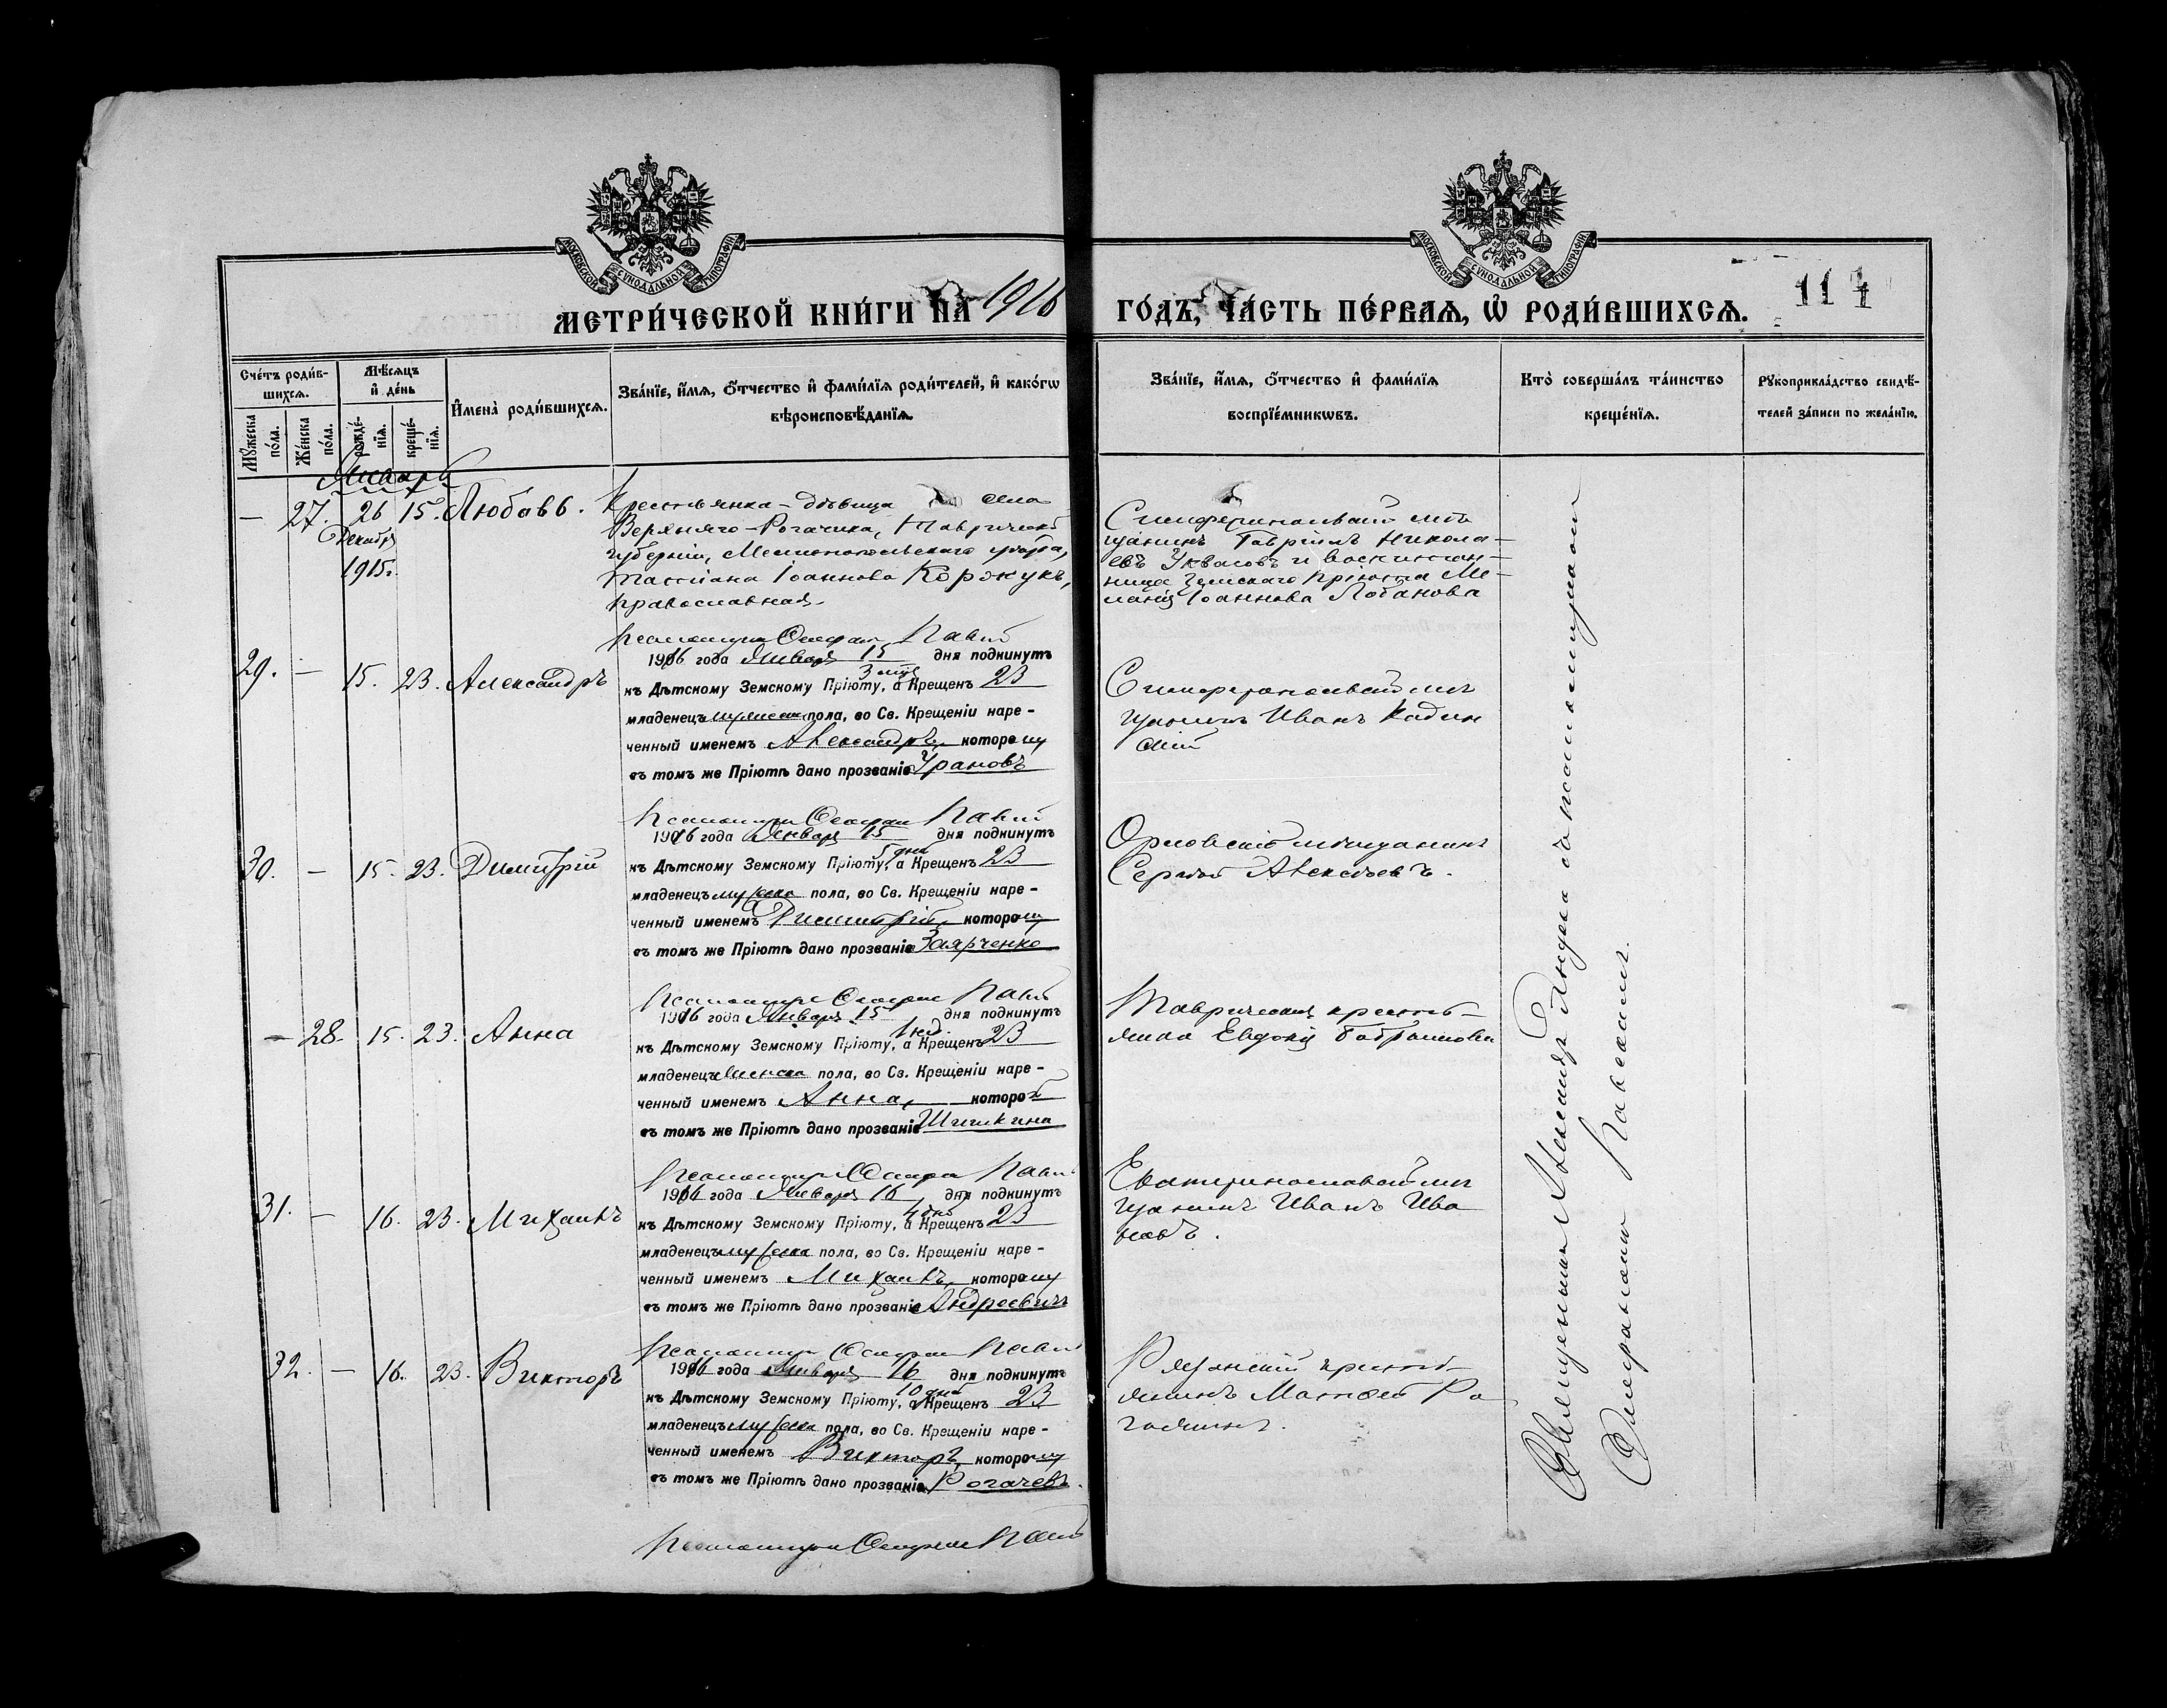 МОСКОВСКОЙ СУНОДАЛЬНОЙ ТИПОГРАФІИ
МОСКОВСКОЙ СУНОДАЛЬНОЙ ТИПОГРАФІИ
МЕТРИ́ЧЕСКОЙ КНИ́ГИ НА 1916 ГО́ДЪ, ЧА́СТЬ ПЕ́РВАѦ, Ѡ҆ РОДИ́ВШИХСѦ.
114
Сче́тъ роди́в-
шихсѧ.
Мꙋ́жеска по́ла.
Же́нска по́ла.
Мѣ́сѧцъ
и҆ де́нь
рожде́-нїѧ.
креще́-нїѧ.
И҆мена̀ роди́вшихсѧ.
Зва́нїе, и҆́мѧ, ѻ҆́тчество и҆ фами́лїѧ роди́телей, и҆ како́гѡ
вѣроисповѣ́данїѧ.
Зва́нїе, и҆́мѧ, ѻ҆́тчество и҆ фами́лїѧ
воспрїе́мникѡвъ.
Кто̀ соверша́лъ та́инство
креще́нїѧ.
Рꙋкоприкла́дство свидѣ́-
телей за́писи по жела́нїю.
Январь
— 27. 26 15. Любовь.
Декабр
1915г.
Крестьянка-дѣвица села
Верхняго-Рогачика, Таврической
губерніи, Мелитопольскаго уѣзда,
Татіана Іоаннова Коржукъ,
православная.
Симферопольскій мѣ
щанинъ Гавріилъ Никола-
евъ и воспитан-
ница Земскаго Пріюта Ме-
ланія Іоаннова Лобанова
29. — 15. 23. Александръ
1916 года Января 15 дня подкинутъ
къ Дѣтскому Земскому Пріюту, а Крещенъ 23
младенецъ мужеска пола, во Св. Крещеніи наре-
ченный именемъ Александръ, которому
въ томъ же Пріютѣ дано прозваніе Урановъ
Симферопольскій мѣ
щанинъ Иванъ Кадин
скій
30. — 15. 23. Димитрій
1916 года Января 15 дня подкинутъ
5 дня
къ Дѣтскому Земскому Пріюту, а Крещенъ 23
младенецъ мужеска пола, во Св. Крещеніи наре-
ченный именемъ Димитрій, которому
въ томъ же Пріютѣ дано прозваніе Заярченко
Орловскій мѣщанинъ
Сергѣй Алексѣевъ.
— 28. 15. 23. Анна
1916 года Января 15 дня подкинутъ
1 нед.
къ Дѣтскому Земскому Пріюту, а Крещенъ 23
младенецъ женска пола, во Св. Крещеніи наре-
ченный именемъ Анна, которой
въ томъ же Пріютѣ дано прозваніе Шишкина
Таврическая кресть-
янка Евдокія
31. — 16. 23. Михаилъ
1916 года Января 16 дня подкинутъ
къ Дѣтскому Земскому Пріюту, а Крещенъ 23
младенецъ мужеска пола, во Св. Крещеніи наре-
ченный именемъ Михаилъ, которому
въ томъ же Пріютѣ дано прозваніе Андреевичъ
Екатеринославскій мѣ
щанинъ Иванъ Ива
новъ.
32. — 16. 23. Викторъ
1916 года Января 16 дня подкинутъ
10 дня
къ Дѣтскому Земскому Пріюту, а Крещенъ 23
младенецъ мужеска пола, во Св. Крещеніи наре-
ченный именемъ Викторъ, которому
въ томъ же Пріютѣ дано прозваніе Рогачевъ.
Рязанскій кресть-
янинъ Матѳей
Священникъ Александр съ псаломщикомъ